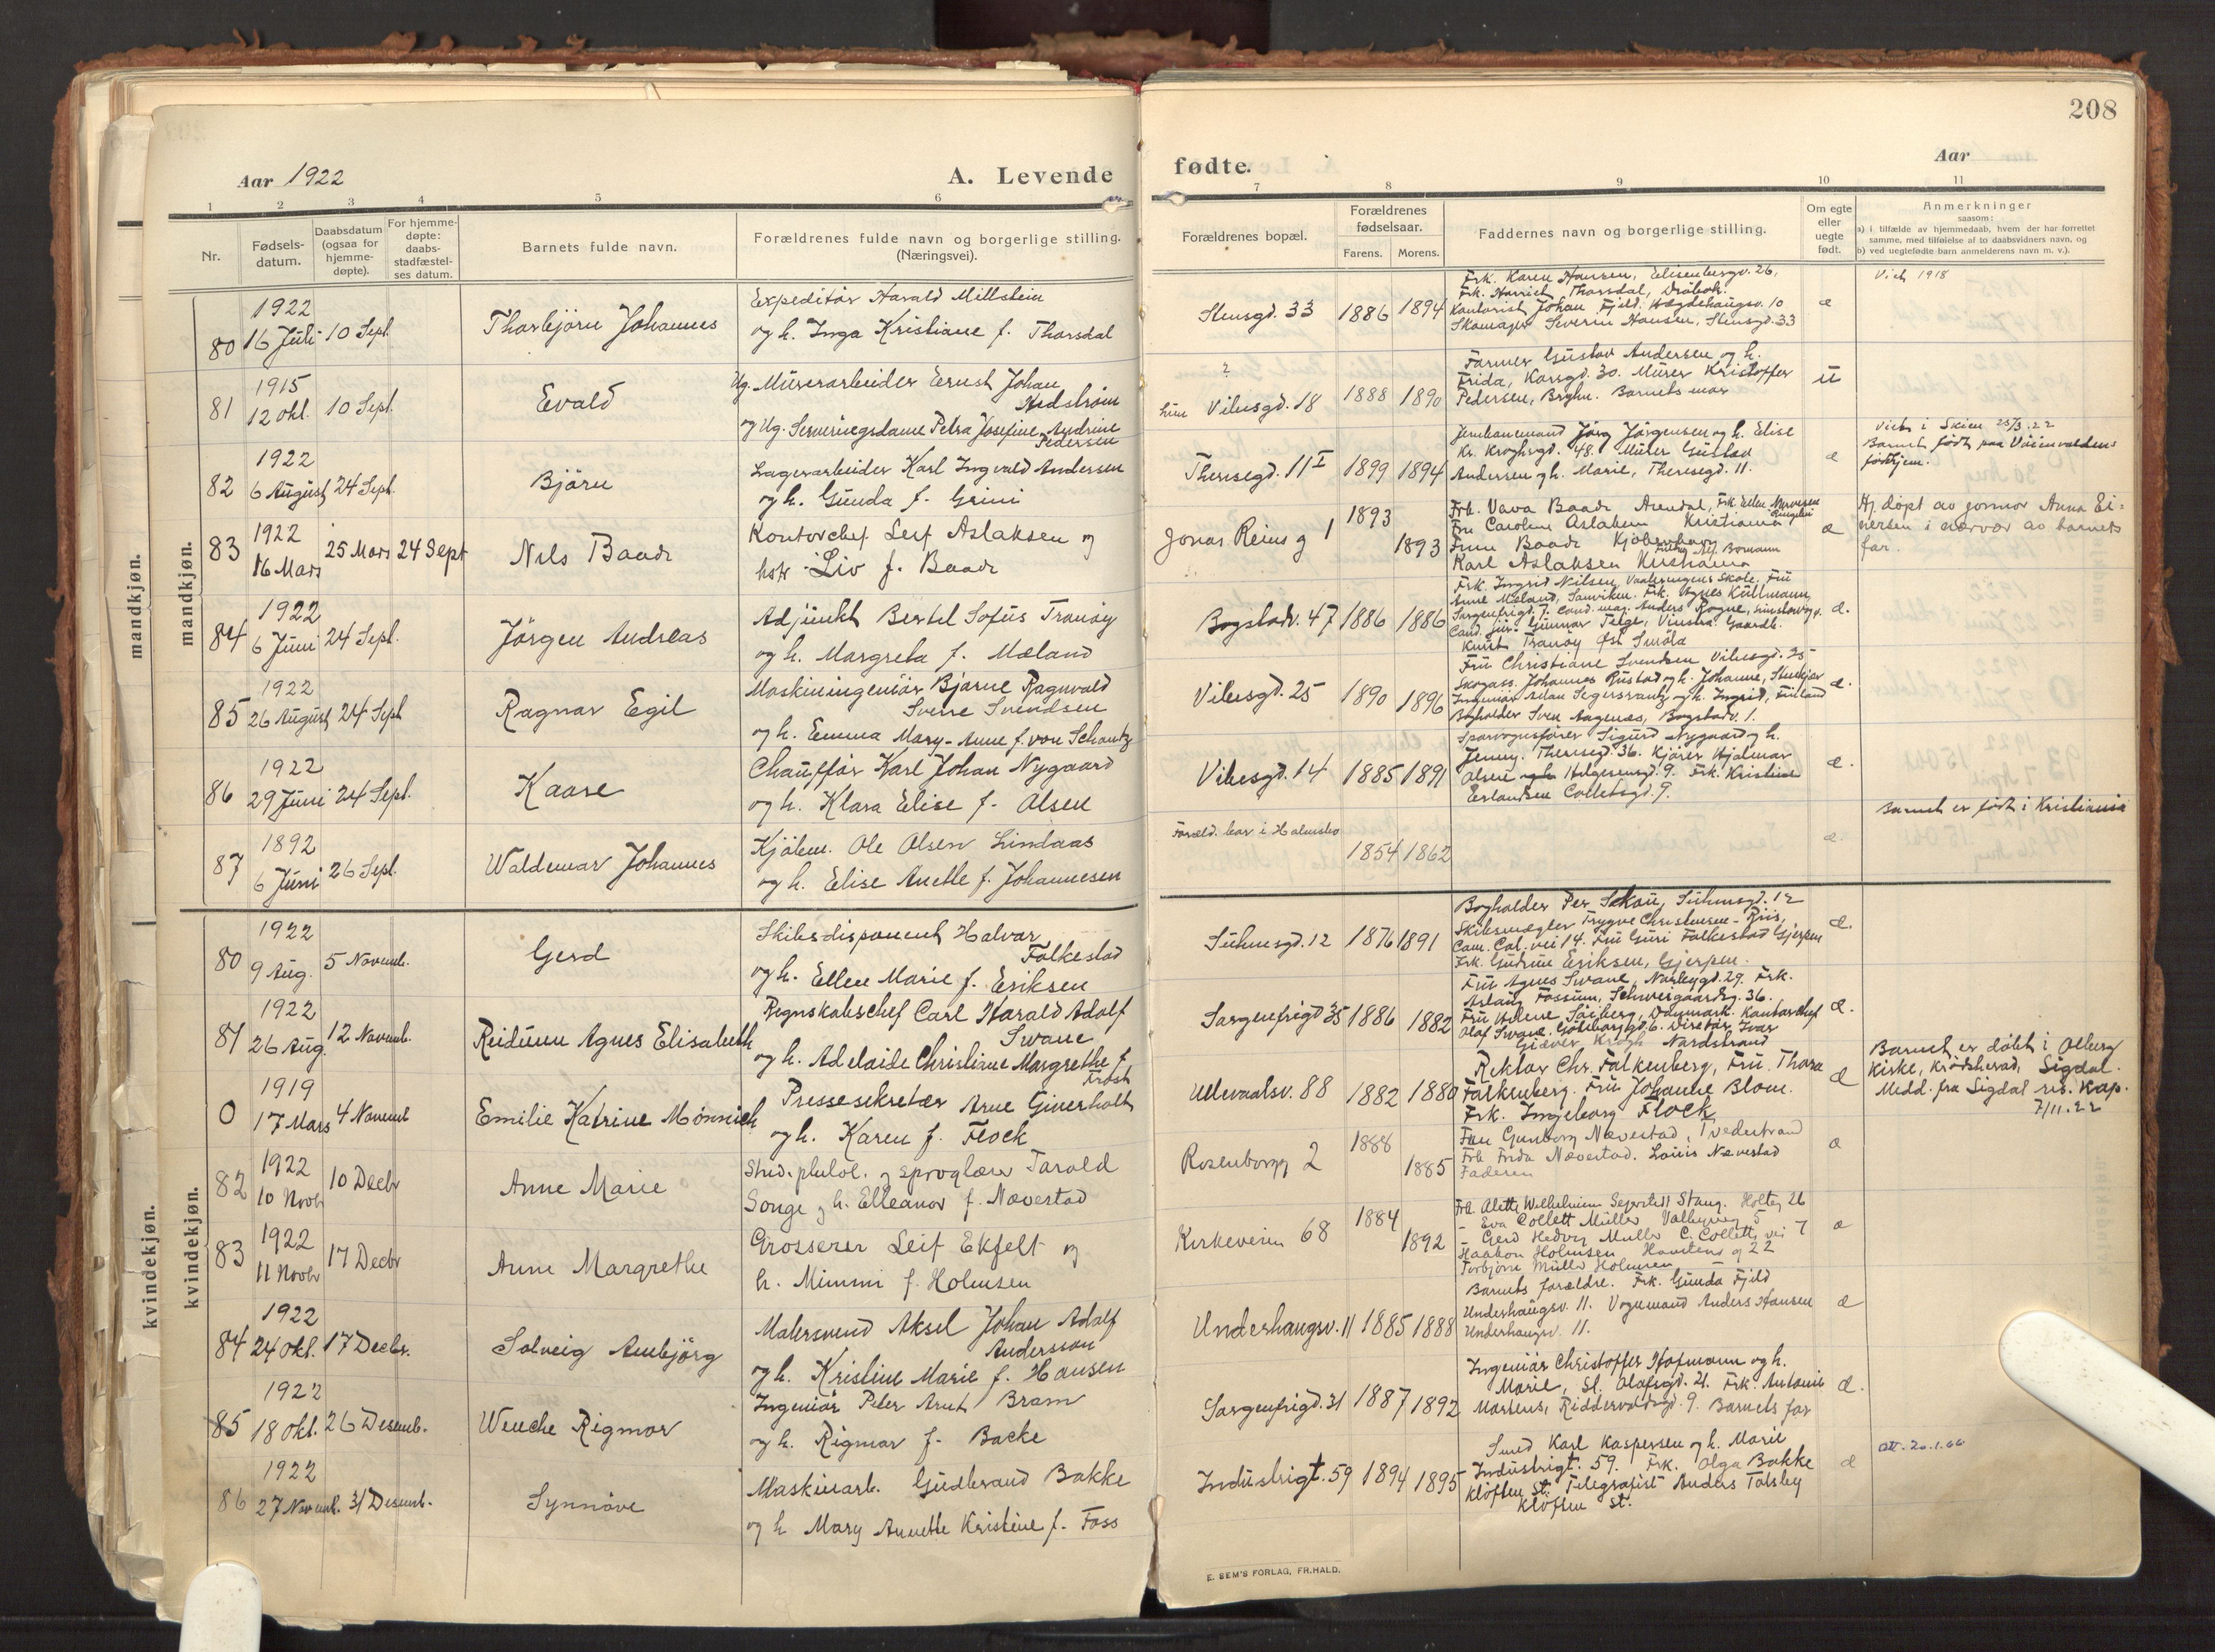 208
Aar 1922
A. Levende
fødte.
Aar
1
2
3
4
5
6
7
8
9
10
11
Nr.
Fødsels-
datum.
Daabsdatum
(ogsaa for
hjemme-
døpte).
For hjemme-
døpte:
daabs-
stadfæstel-
ses datum.
Barnets fulde navn.
Forældrenes fulde navn og borgerlige stilling.
(Næringsvei).
Forældrenes bopæl.
Forældrenes
fødselsaar.
Farens.
Morens.
Faddernes navn og borgerlige stilling.
Om egte
eller
uegte
født.
Anmerkninger
saasom:
a) i tilfælde av hjemmedaab, hvem der har forrettet
samme, med tilføielse af to daabsvidners navn, og
b) ved ueglefødte barn anmelderens navn m. v.).
mandkjøn.
mandkjøn.
1922
80 16 Juli 10 Sept.
Thorbjörn Johannes
Expeditör Harald Millstein
og h. Inga Kristiane f. Thorsdal
Stensgd. 33
1886 1894
Frk. Karen Hansen, Eilisenbergv. 26,
Frk. Harriet Thorsdal, Dröbak.
Kontorist Johan Fjeld. Hægdehaugsv. 10
Skomager Severin Hansen, Stensgd. 33
æ
Viet 1918
1915
81 12 Okt. 10 Sept.
Evald
Ug. Murerarbeider Ernst Johan
Hedström
og Ug. Serveringsdame Petra Josefine Andrine
Pedersen
?
Vibesgd. 18
1888 1890
Farmer Gustav Andersen og h.
Frida, Korsgd. 30. Murer Kristoffer
Pedersen, Bryhn. Barnets mor
u
1922
82 6 August 24 Sept.
Björn
Lagerarbeider Karl Ingvald Andersen
og h. Gunda f. Grini
Theresegd. 11 I
1899 1894
Jernbanemand Jörg Jörgensen og h. Elise
Kr. Kroghsgd. 48. Murer Gustav
Andersen og h. Marie, Theresegd. 11.
æ
Viet i Skien 25/3.22
Barnet født paa
1922
83 16 Mars 25 Mars 24 Sept
Nils Baade
Kontorchef Leif Aslaksen og
hstr Liv f. Baade
Jonas Reins g 1
1893
1893
Frk. Vava Baade Arendal,
Fru Caroline Aslaksen Kristiania
Baade Kjöbenhavn
Karl Aslaksen Kristiania
æ
Hj døpt av jormor Anna Ei-
nersen i nærvær av barnets
far.
1922
84 6 Juni 24 Sept.
Jörgen Andreas
Adjunkt Bertel Sofus Tranöy
og h. Margreta f. Mæland
Bogstadv. 47
1886 1886
Frk. Ingrid Nilsen, Vaalerengens Skole. Fru
Anne Mæland, Sanviken. Frk. Agnes Kullmann
Sorgenfrigd. 7. Cand. mag. Anders Rogne,
Cand. jur. Gunnar Telge, Vinstra Gaardb.
Knut Tranöy Öst Smöla
æ.
1922
85 26 August 24 Sept
Ragnar Egil
Maskiningeniör Bjarne Ragnvald
Sverre Svendsen
og h. Emma Mary-Anne f. von Schantz
Vibesgd. 25
1890 1896
Fru Christiane Svendsen Vibesgd. 25
Skogass. Johannes Rustad og h. Johanne, Stenkjær
Ingeniör Allan Segersvantz og h. Ingrid, Finland
Bogholder Sven Aagenæs, Bogstadv. 1.
æ.
1922
86 29 Juni 24 Sept.
Kaare
Chaufför Karl Johan Nygaard
og h. Klara Elise f. Olsen
Vibesgd. 14
1885 1891
Sporvognsfører Sigurd Nygaard og h.
Jenny. Theresegd. 36. Kjörer Hjalmar
Olsen Helgesensgd. 9. Frk. Kristine
Erlandsen Collettsgd. 9.
æ.
1892
87 6 Juni 26 Sept.
Waldemar Johannes
Kjöbm. Ole Olsen Lindaas
og h. Elise Anette f. Johannesen
Foræld. bor i Holmsbo
1854 1862
æ.
Barnet er født i Kristiania
kvindekjøn.
kvindekjøn.
1922
80 9 Aug. 5 Novemb.
Gerd
Skibsdisponent Halvor
Falkestad
og h. Ellen Marie f. Eriksen
Suhmsgd. 12
1876 1891
Bogholder Per Skou, Suhmsgd. 12
Skibsmægler Trygve Christensen-Riis,
Cam. Col. vei 14. Fru Guri Falkestad Gjerpen
Frk. Gudrun Eriksen, Gjerpen.
æ.
1922
81 26 Aug. 12 Novemb.
Reidunn Agnes Elisabeth
Regnskabschef Carl Harald Adolf
Swane
og h. Adelaide Christiane Margrethe f.
Frost
Sorgenfrigd 35
1886 1882
Fru Agnes Swane, Nørbygd. 29. Frk.
Aslaug Fossum, Schweigaardsg. 36.
Fru Helene Saiberg, Danmark. Kontorchef
Olaf Swane. Göteborggd. 6. Direktör Ivar
Giæver Krogh Nordstrand
æ.
1919
0 17 Mars 4 Novemb
Emilie Katrine Mønnich
Pressesekretær Arne Giverholt
og h. Karen f. Flock
Ullevaalsv. 88
1882 1880
Rektor Chr. Falkenberg, Fru Thora
Falkenberg. Fru Johanne Blom.
Frk. Ingeborg Flock
æ
Barnet er døbt i Olberg
Kirke, Krødsherad, Sigdal.
Medd. fra Sigdal res. Kap.
7/11.22
1922
82 10 Novbr 10 Decbr
Anne Marie
Stud. philol. og sproglærer Tarald
Songe og h. Elleanor f. Nævestad
Rosenborgg 2
1888
1885
Fru Gunborg Nævestad, Tvedestrand
Frk Frida Nævestad. Louis Nævestad
Faderen
æ
1922
83 11 Novbr 17 Decbr
Anne Margrethe
Grosserer Leif Ekfelt og
h. Mimmi f. Holmsen
Kirkeveien 68
1884
1892
Frk. Alette Wilhelmine Sejersted Stang. Holteg 26
- Eva Collett Müller Valkyrieg 5
- Gerd Hedvig Müller C. Colletts vei 7
Haakon Holmsen Havstens g 22
Torbjörn Müller Holmsen
æ
1922
84 24 Okt. 17 Decbr.
Solveig Aubjörg
Malersvend Aksel Johan Adolf
Andersson
og h. Kristine Marie f. Hansen
Underhaugsv. 11
1885 1888
Barnets forældre. Frk. Gunda Fjeld
Underhaugsv. 11. Vognmand Anders Hansen
Underhaugsv. 11.
æ
1922
85 18 Okt. 26 Desemb.
Wenche Rigmor
Ingeniör Peter Arnt Bram
og h. Rigmor f. Backe
Sorgenfrigd. 31
1887 1892
Ingeniör Christoffer Hofmann og h.
Marie, St. Olafsgd. 21. Frk. Antonie
Martens, Riddervoldsgd. 9. Barnets far
æ.
1922
86 27 Novemb. 31 Desemb.
Synnöve
Maskinarb. Gudbrand Bakke
og h Mary Annette Kristine f. Foss
Industrigt. 59
1894 1895
Smed Karl Kaspersen og h. Marie
Industrigt. 59. Frk. Olga Bakke
Klöften St. Telegrafist Anders Tolsby
Klöften St.
æ
att. 20.1.66
E. SEM'S FORLAG, FR.HALD.